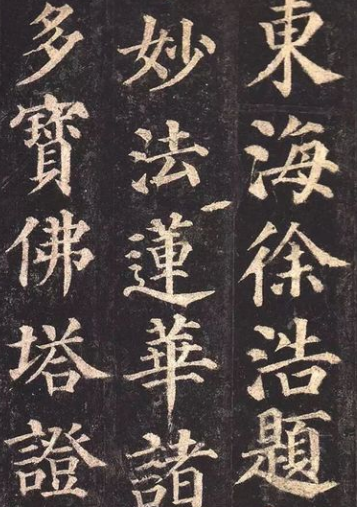 東海徐浩題
妙法蓮華諸
多寶佛塔證